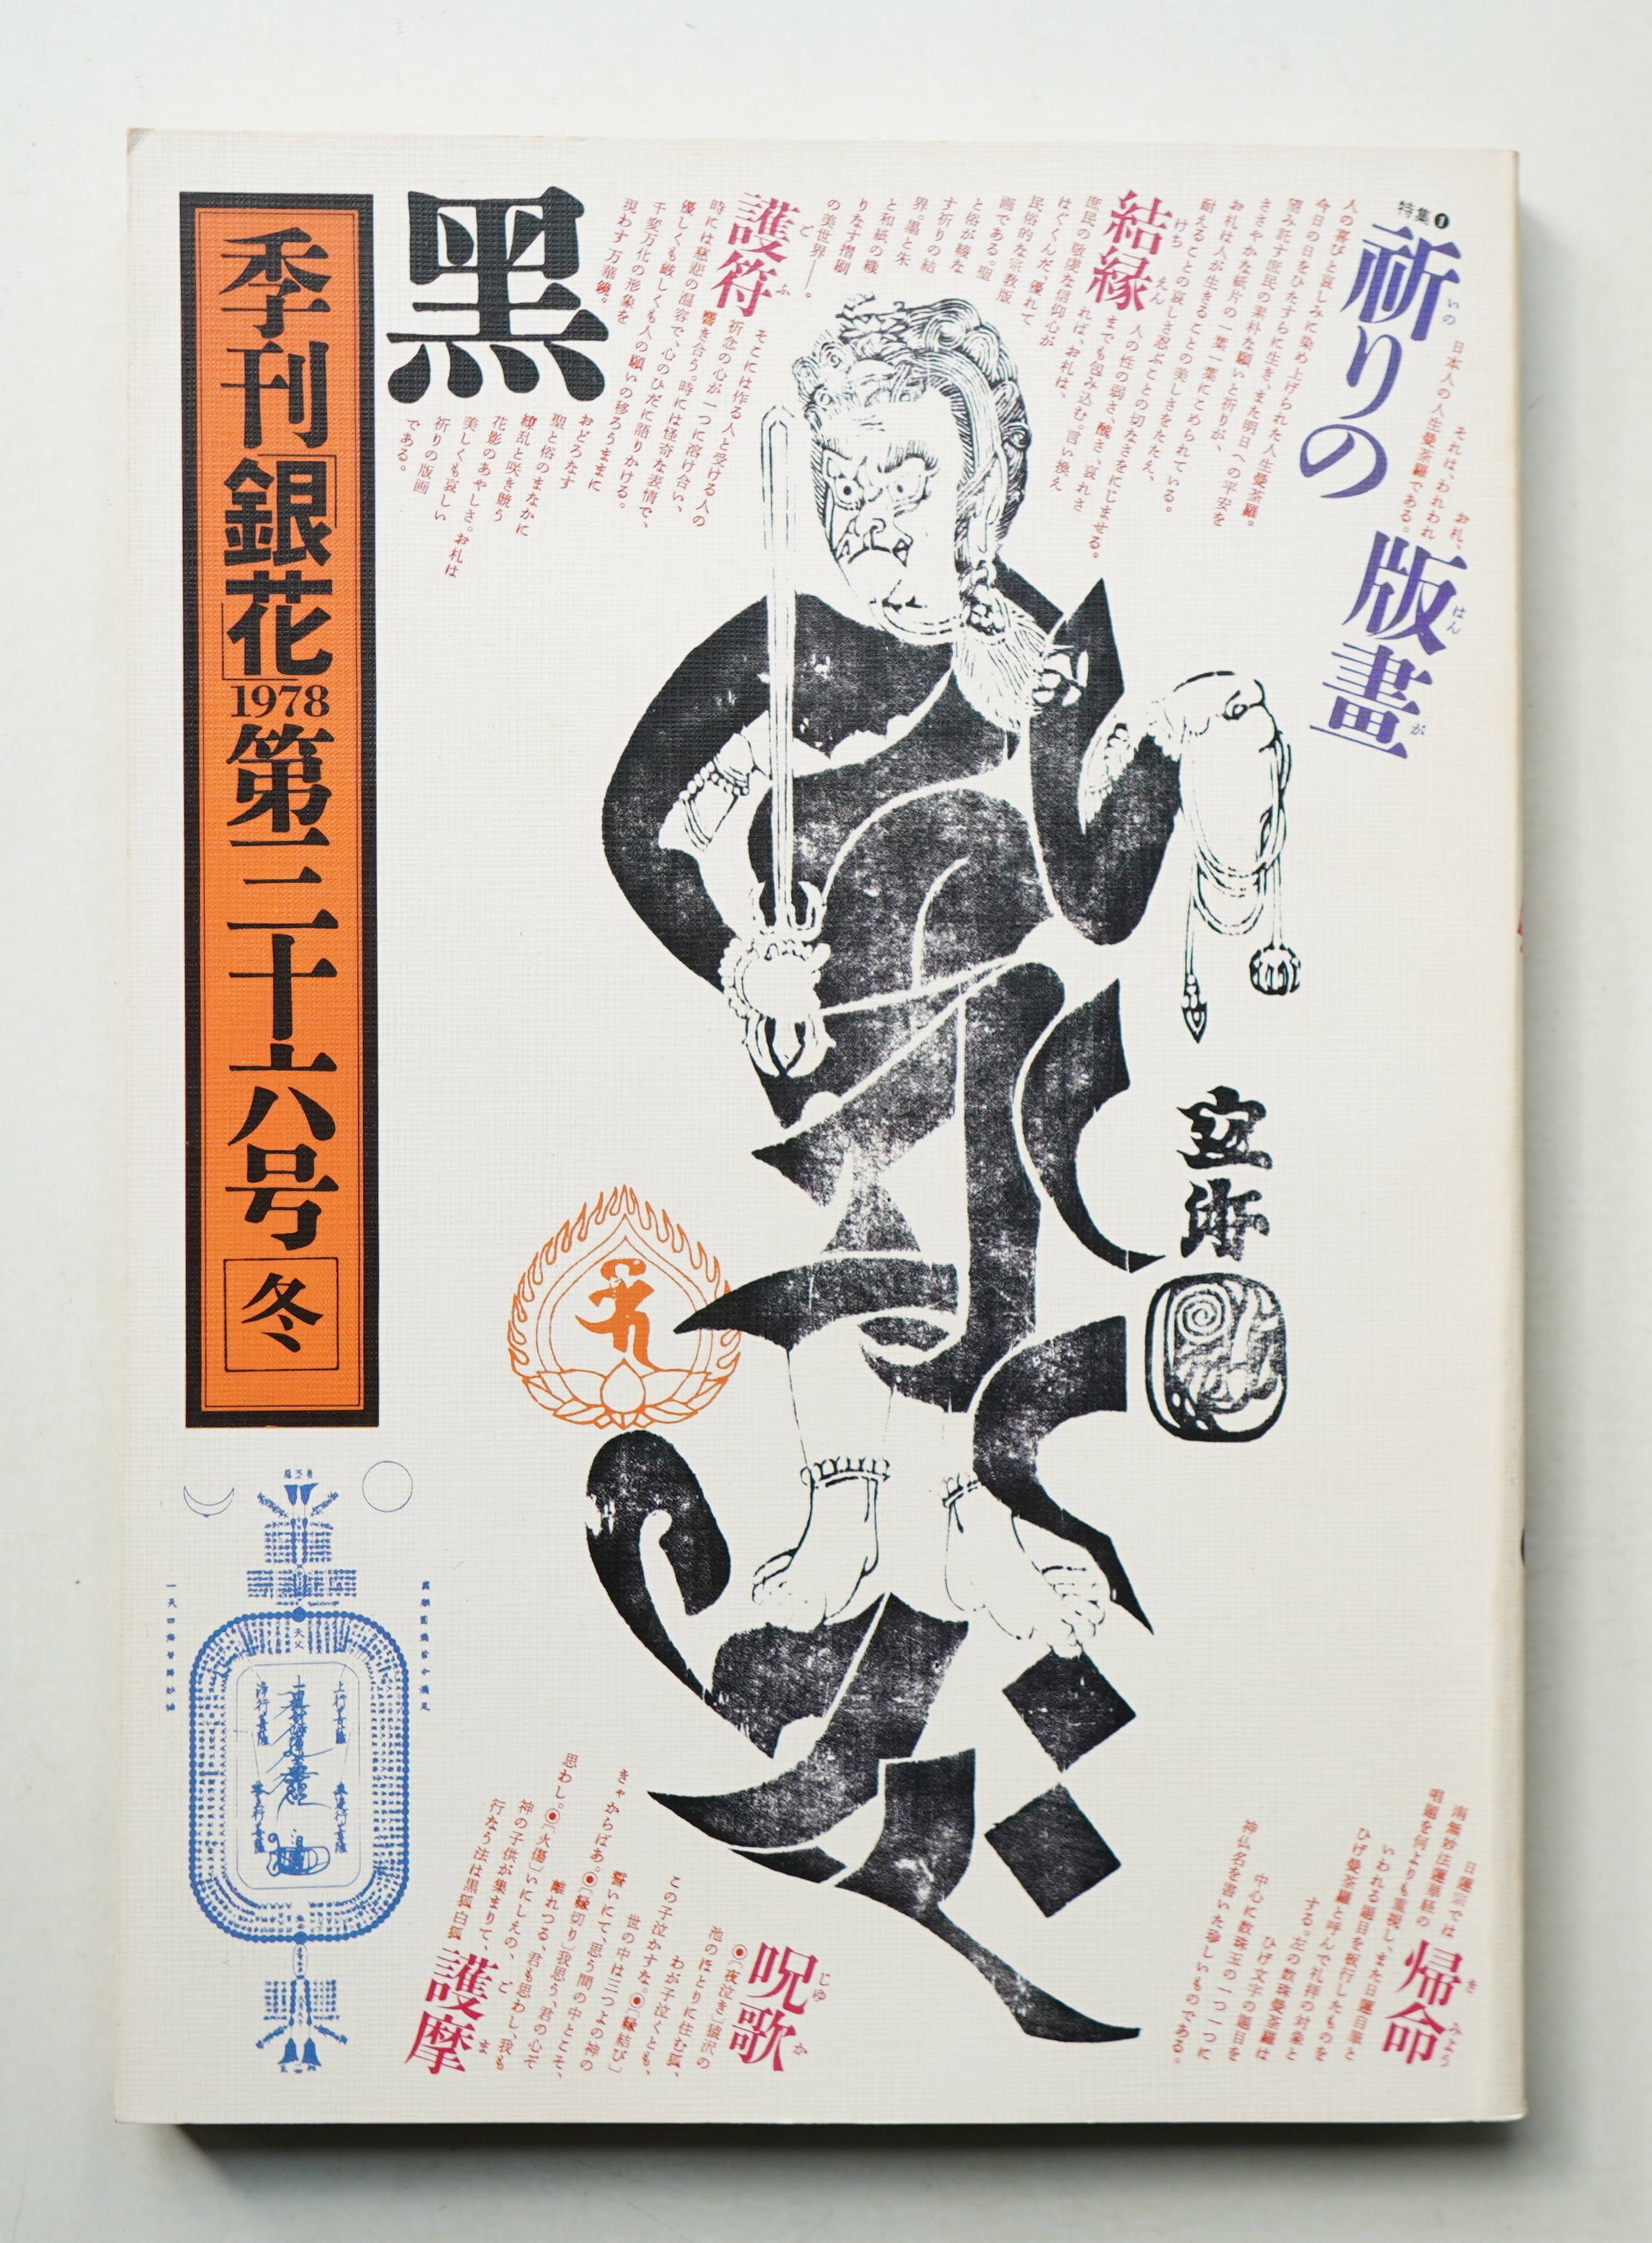 特集1
祈りの
いの
版畫
はん
が
お札、
それは、われわれ
日本人の人生曼荼羅である。
人の喜びと哀しみに染め上げられた人生曼荼羅。
今日の日をひたすらに生き、また明日への平安を
望み託す庶民の素朴な願いと祈りが、
ささやかな紙片の一葉一葉にこめられている。
お札は人が生きることの美しさをたたえ、
耐えることの哀しさ忍ぶことの切なさをにじませる。
結縁
けち
えん
人の性の弱さ、醜さ、哀れさ
までも包み込む。言い換え
れば、お札は、
庶民の敬虔な信仰心が
はぐくんだ、優れて
民俗的な宗教版
画である。聖
と俗が綾な
す祈りの結
界。墨と朱
と和紙の織
りなす摺刷
の美世界──。
護符
ご
ふ
そこには作る人と受ける人の
祈念の心が一つに溶け合い、
響き合う。時には怪奇な表情で、
時には慈悲の温容で、心のひだに語りかける。
優しくも厳しくも人の願いの移ろうままに
千変万化の形象を
現わす万華鏡。
おどろなす
聖と俗のまなかに
繚乱と咲き競う
花影のあやしさ。お札は
美しくも哀しい
祈りの版画
である。
黑
季刊「銀花」1978第三十六号[冬]
帰命
き
みょう
日蓮宗では
南無妙法蓮華経の
唱題を何よりも重視し、また日蓮日筆と
いわれる題目を板行したものを
ひげ曼荼羅と呼んで礼拝の対象と
する。左の数珠曼荼羅は
ひげ文字の題目を
中心に数珠玉の一つ一つに
神仏名を書いた珍しいものである。
呪歌
じゆ
か
◉「夜泣き」猿沢の
池のほとりに住む狐、
わが子泣くとも、
この子泣かすな。◉「縁結び」
世の中は三つよの神の
誓いにて、思う間の中とこそ、
きゃからばあ。◉「縁切り」我思う、君の心ぞ
離れつる、君も思わし、我も
思わし。◉「火傷」いにしえの、
神の子供が集まりて、
行なう法は黒狐白狐
護摩
ご
ま
天父
上行菩薩
浄行菩薩